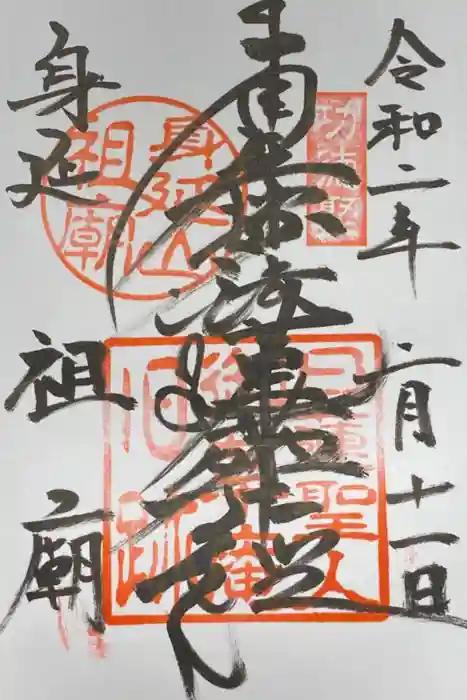 令和二年二月十一日
南無妙法蓮華経
身延祖廟
身延山祖廟
日蓮聖人
御草庵
旧跡